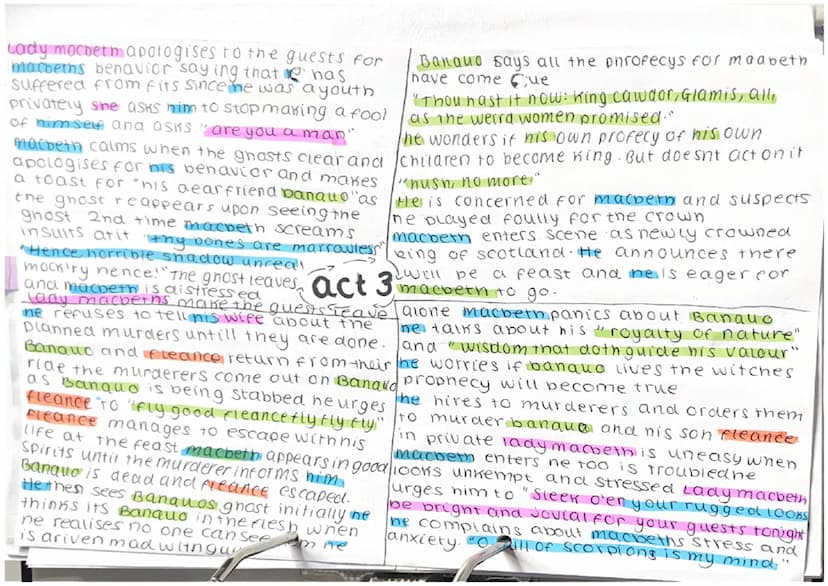 Lady macbeth apologises to the guests for
macbeths behavior saying that has
suffered from fits since he was a youth
privately she asks him to stop making a fool
of himself and asks "are you a man"
macbeth calms when the ghosts clear and
apologises for his behavior and makes
a toast for "his dear friend banquo" as
the ghost reappears upon seeing the
ghost 2nd time macbeth screams
insults at it "Thy bones are marrowless"
"Hence horrible shadow unreal
mockiry hence!" The ghost leaves
and macbeth is distressed
lady macbeths make the guests leave
Banquo says all the for macbeth
have come
"Thou hast it now: King cawdor, Glamis, all,
as the weird women promised."
he wonders if his own profecy of his own
children to become king. But doesnt act on it
"hush, no more"
He is concerned for macbeth and suspects
he played foully for the crown
macbeth enters scene as newly crowned
king of scotland. He announces there
will be a feast and he is eager for
macbeth to go.
act 3
he refuses to tell his wife about the
planned murders untill they are done.
Banquo and fleance return from their
ride the murderers come out on Banquo
as Banquo is being stabbed he urges
fleance to "fly good fleance fly fly fly"
fleance manages to escape with his
life at the feast macbeth appears in good
spirits until the murderer informs him
Banquo is dead and fleance escaped.
He then sees Banquos ghost initially he
thinks its Banquo in the flesh when
he realises no one can see he
is driven mad with
alone macbeth panics about Banquo
he talks about his "royalty of nature"
and "wisdom that doth guide his valour"
he worries if banquo lives the witches
prophecy will become true
he hires to murderers and orders them
to murder banquo and his son fleance
in private lady macbeth is uneasy when
macbeth enters he too is troubled he
looks unkempt and stressed Lady macbeth
urges him to "Sleek o'er your rugged looks
be bright and jovial for your guests tonight
he complains about macbeths stress and
anxiety. "O full of scorpions is my mind."